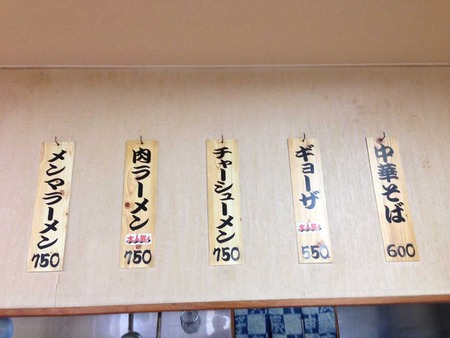 中華そば
600
ギョーザ
550
チャーシューメン
750
肉ラーメン
750
メンマラーメン
750